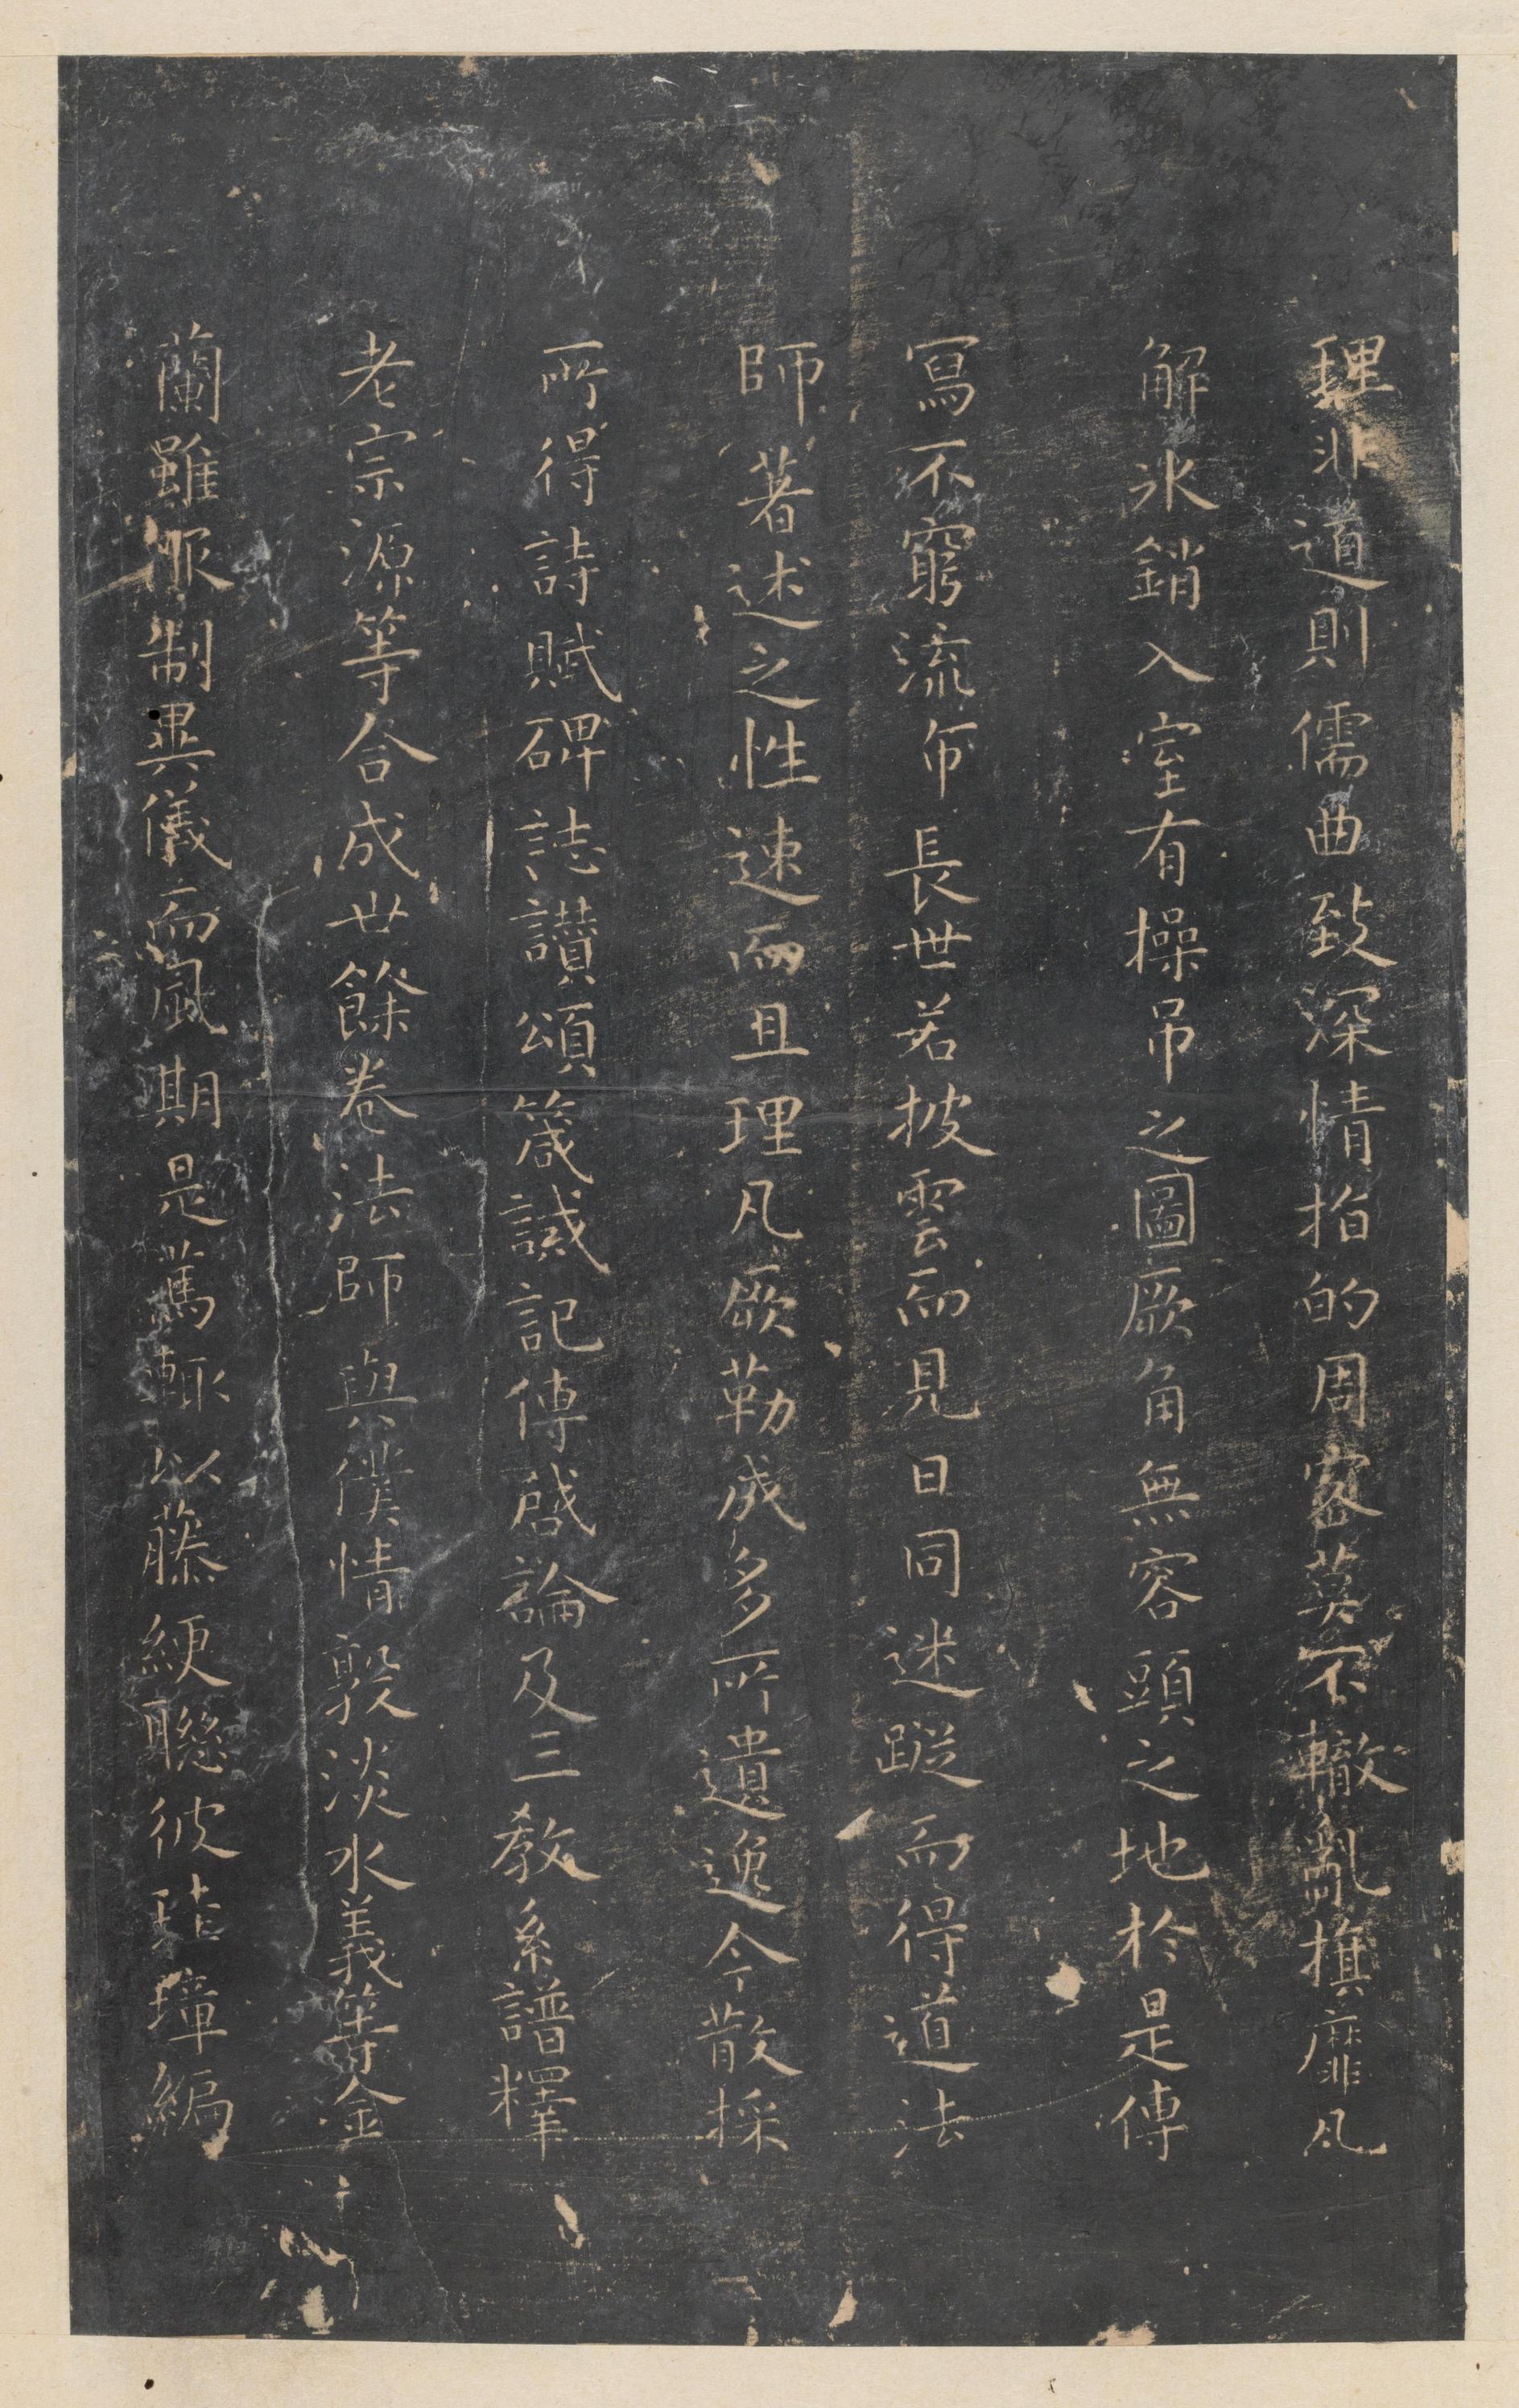 理非道則儒曲致深情指的周密莫不轍亂旗靡凡
解氷銷入室有操吊之圖厥角無容頭之地於是傳
寫不窮流布長世若披雲而見日同迷蹤而得道法
師著述之性速而且理凡厥勒成多所遺逸今散採
所得詩賦碑誌讃頌箴誡記傳啓論及三教系譜釋
老宗源等合成卅餘卷法師與僕情敦淡水義等金
蘭雖服制異儀而風期是篤輒以藤綆聯彼珪璋編